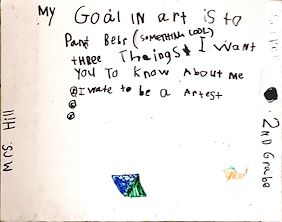 MY GOAl IN art is to
Pant Betr (SOMETHING COOL)
tHREE Theings I Want
YOU TO KNOW ABOUT ME
I wate to be a Artest
Mrs. Hill
2ND Grade